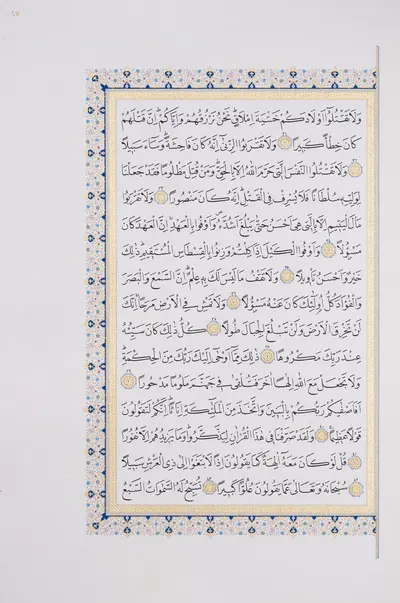 ٤٧
وَلَا تَقْتُلُوا اَوْلَادَكُمْ خَشْيَةَ اِمْلَاقٍ نَحْنُ نَرْزُقُهُمْ وَاِيَّاكُمْ اِنَّ قَتْلَهُمْ
كَانَ خِطْاً كَبِيرًا وَلَا تَقْرَبُوا الزِّنٰى اِنَّهُ كَانَ فَاحِشَةً وَسَاءَ سَبِيلًا
وَلَا تَقْتُلُوا النَّفْسَ الَّتِى حَرَّمَ اللّٰهُ اِلَّا بِالْحَقِّ وَمَنْ قُتِلَ مَظْلُومًا فَقَدْ جَعَلْنَا
لِوَلِيِّهِ سُلْطَانًا فَلَا يُسْرِفْ فِى الْقَتْلِ اِنَّهُ كَانَ مَنْصُورًا وَلَا تَقْرَبُوا
مَالَ الْيَتِيمِ اِلَّا بِالَّتِى هِىَ اَحْسَنُ حَتّٰى يَبْلُغَ اَشُدَّهُ وَاَوْفُوا بِالْعَهْدِ اِنَّ الْعَهْدَ كَانَ
مَسْؤُلًا وَاَوْفُوا الْكَيْلَ اِذَا كِلْتُمْ وَزِنُوا بِالْقِسْطَاسِ الْمُسْتَقِيمِ ذٰلِكَ
خَيْرٌ وَاَحْسَنُ تَاْوِيلًا وَلَا تَقْفُ مَا لَيْسَ لَكَ بِهِ عِلْمٌ اِنَّ السَّمْعَ وَالْبَصَرَ
وَالْفُؤَادَ كُلُّ اُولٰئِكَ كَانَ عَنْهُ مَسْؤُلًا وَلَا تَمْشِ فِى الْاَرْضِ مَرَحًا اِنَّكَ
لَنْ تَخْرِقَ الْاَرْضَ وَلَنْ تَبْلُغَ الْجِبَالَ طُولًا كُلُّ ذٰلِكَ كَانَ سَيِّئُهُ
عِنْدَ رَبِّكَ مَكْرُوهًا ذٰلِكَ مِمَّا اَوْحٰى اِلَيْكَ رَبُّكَ مِنَ الْحِكْمَةِ
وَلَا تَجْعَلْ مَعَ اللّٰهِ اِلٰهًا اٰخَرَ فَتُلْقٰى فِى جَهَنَّمَ مَلُومًا مَدْحُورًا
اَفَاَصْفٰيكُمْ رَبُّكُمْ بِالْبَنِينَ وَاتَّخَذَ مِنَ الْمَلٰئِكَةِ اِنَاثًا اِنَّكُمْ لَتَقُولُونَ
قَوْلًا عَظِيمًا وَلَقَدْ صَرَّفْنَا فِى هٰذَا الْقُرْاٰنِ لِيَذَّكَّرُوا وَمَا يَزِيدُهُمْ اِلَّا نُفُورًا
قُلْ لَوْ كَانَ مَعَهُ اٰلِهَةٌ كَمَا يَقُولُونَ اِذًا لَابْتَغَوْا اِلٰى ذِى الْعَرْشِ سَبِيلًا
سُبْحَانَهُ وَتَعَالٰى عَمَّا يَقُولُونَ عُلُوًّا كَبِيرًا تُسَبِّحُ لَهُ السَّمٰوَاتُ السَّبْعُ